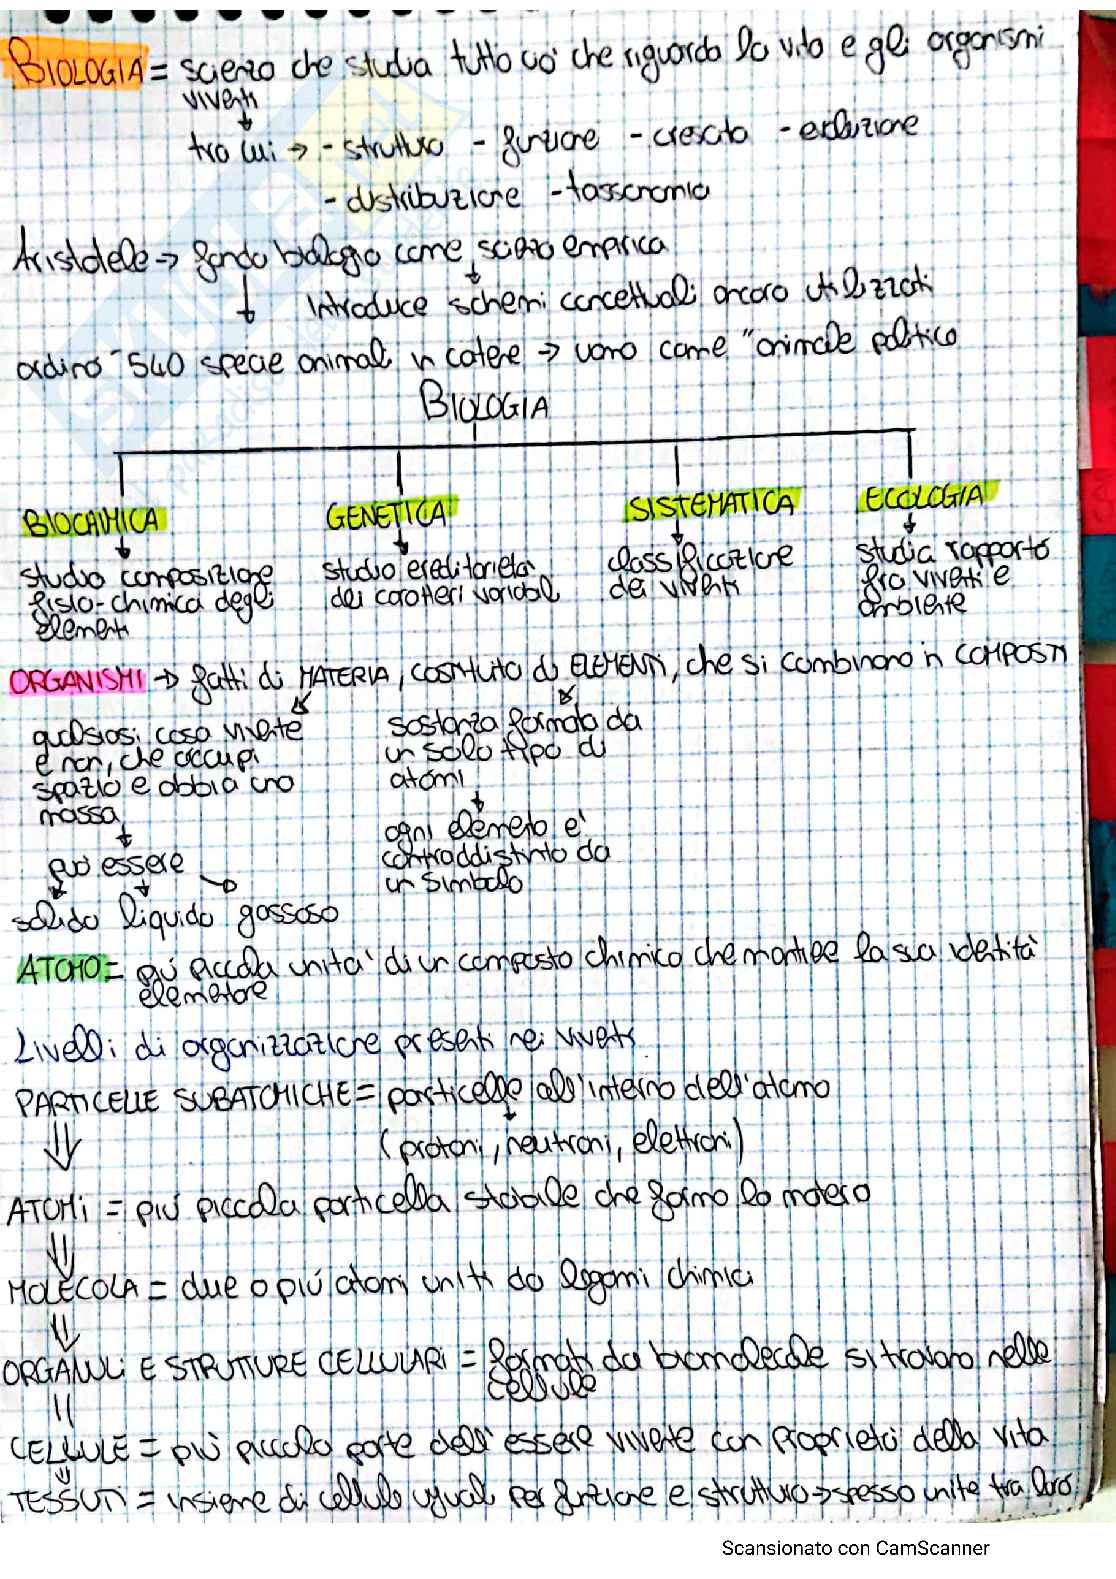 BIOLOGIA = scienza che studia tutto ciò che riguarda la vita e gli organismi
viventi
tra cui → - struttura - funzione - crescita - evoluzione
- distribuzione - tassonomia
Aristotele → fondò biologia come scienza empirica
Introduce schemi concettuali ancora utilizzati
ordinò 540 specie animali in catene → uomo come "animale politico
BIOLOGIA
BIOCHIMICA GENETICA SISTEMATICA ECOLOGIA
studio composizione
fisio-chimica degli
elementi
studio ereditarietà
dei caratteri variabili
classificazione
dei viventi
studia rapporto
fra viventi e
ambiente
ORGANISMI → fatti di MATERIA, costituito di ELEMENTI, che si combinano in COMPOSTI
qualsiasi cosa vivente
e non, che occupi
spazio e abbia una
massa
può essere
solido liquido gassoso
sostanza formata da
un solo tipo di
atomi
ogni elemento è
contraddistinto da
un simbolo
ATOMO = più piccola unità di un composto chimico che mantiene la sua identità
elementare
Livelli di organizzazione presenti nei viventi
PARTICELLE SUBATOMICHE = particelle all'interno dell'atomo
(protoni, neutroni, elettroni)
ATOMI = più piccola particella stabile che forma la materia
MOLECOLA = due o più atomi uniti da legami chimici
ORGANULI E STRUTTURE CELLULARI = formati da biomolecole si trovano nelle
cellule
CELLULE = più piccola parte dell'essere vivente con proprietà della vita
TESSUTI = insieme di cellule uguali per funzione e struttura → spesso unite tra loro
Scansionato con CamScanner